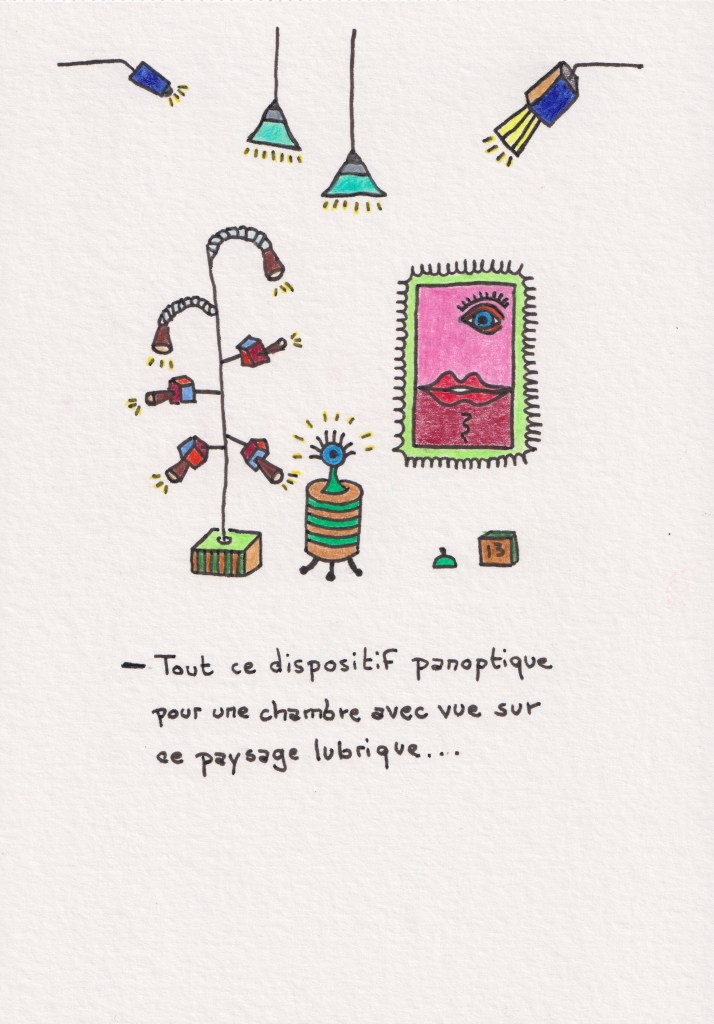 13
— Tout ce dispositif panoptique
pour une chambre avec vue sur
ce paysage lubrique...